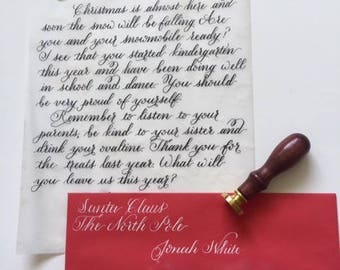 Christmas is almost here and
soon the snow will be falling Are
you and your snowmobile ready?
I see that you started kindergarten
this year and have been doing well
in school and dance. You should
be very proud of yourself
Remember to listen to your
parents, be kind to your sister and
drink your ovaltine. Thank you for
the treats last year. What will
you leave us this year?
Santa Claus
The North Pole
Jonah White